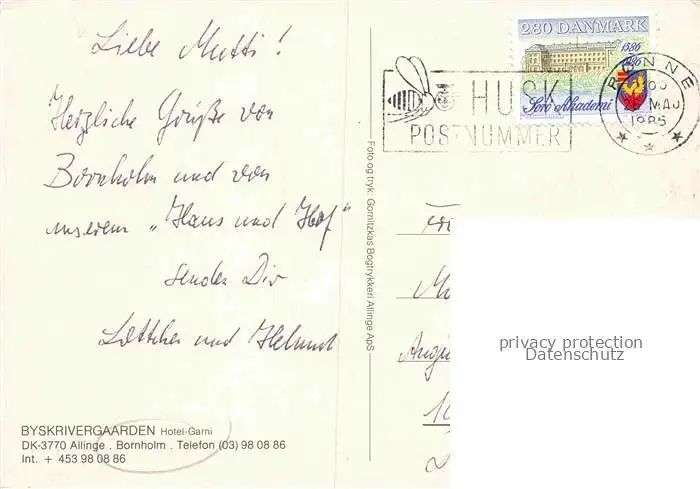 Liebe Mutti!
Herzliche Grüße von
Bornholm und von
unserem „Haus und Hof"
senden Dir
Lottchen und Helmut
BYSKRIVERGAARDEN Hotel-Garni
DK-3770 Allinge . Bornholm . Telefon (03) 98 08 86
Int. + 453 98 08 86
Foto og tryk: Gornitzkas Bogtrykkeri Allinge ApS
2.80 DANMARK
1586
1986
Sorø Akademi
HUSK
POSTNUMMER
RØNNE
26 MAJ
1986
privacy protection
Datenschutz